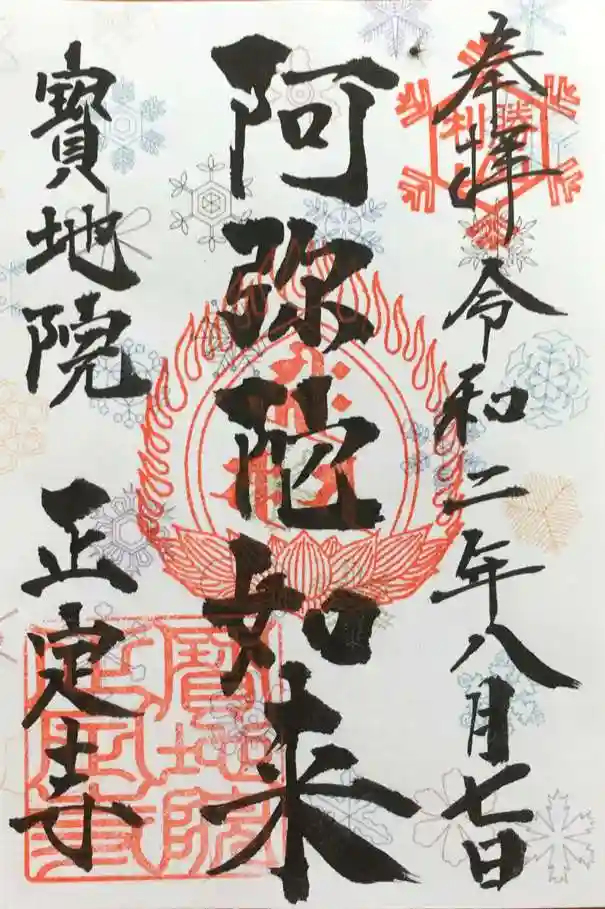 奉拝 令和二年八月七日
阿弥陀如来
寳地院 正定寺
寳地院
正定寺